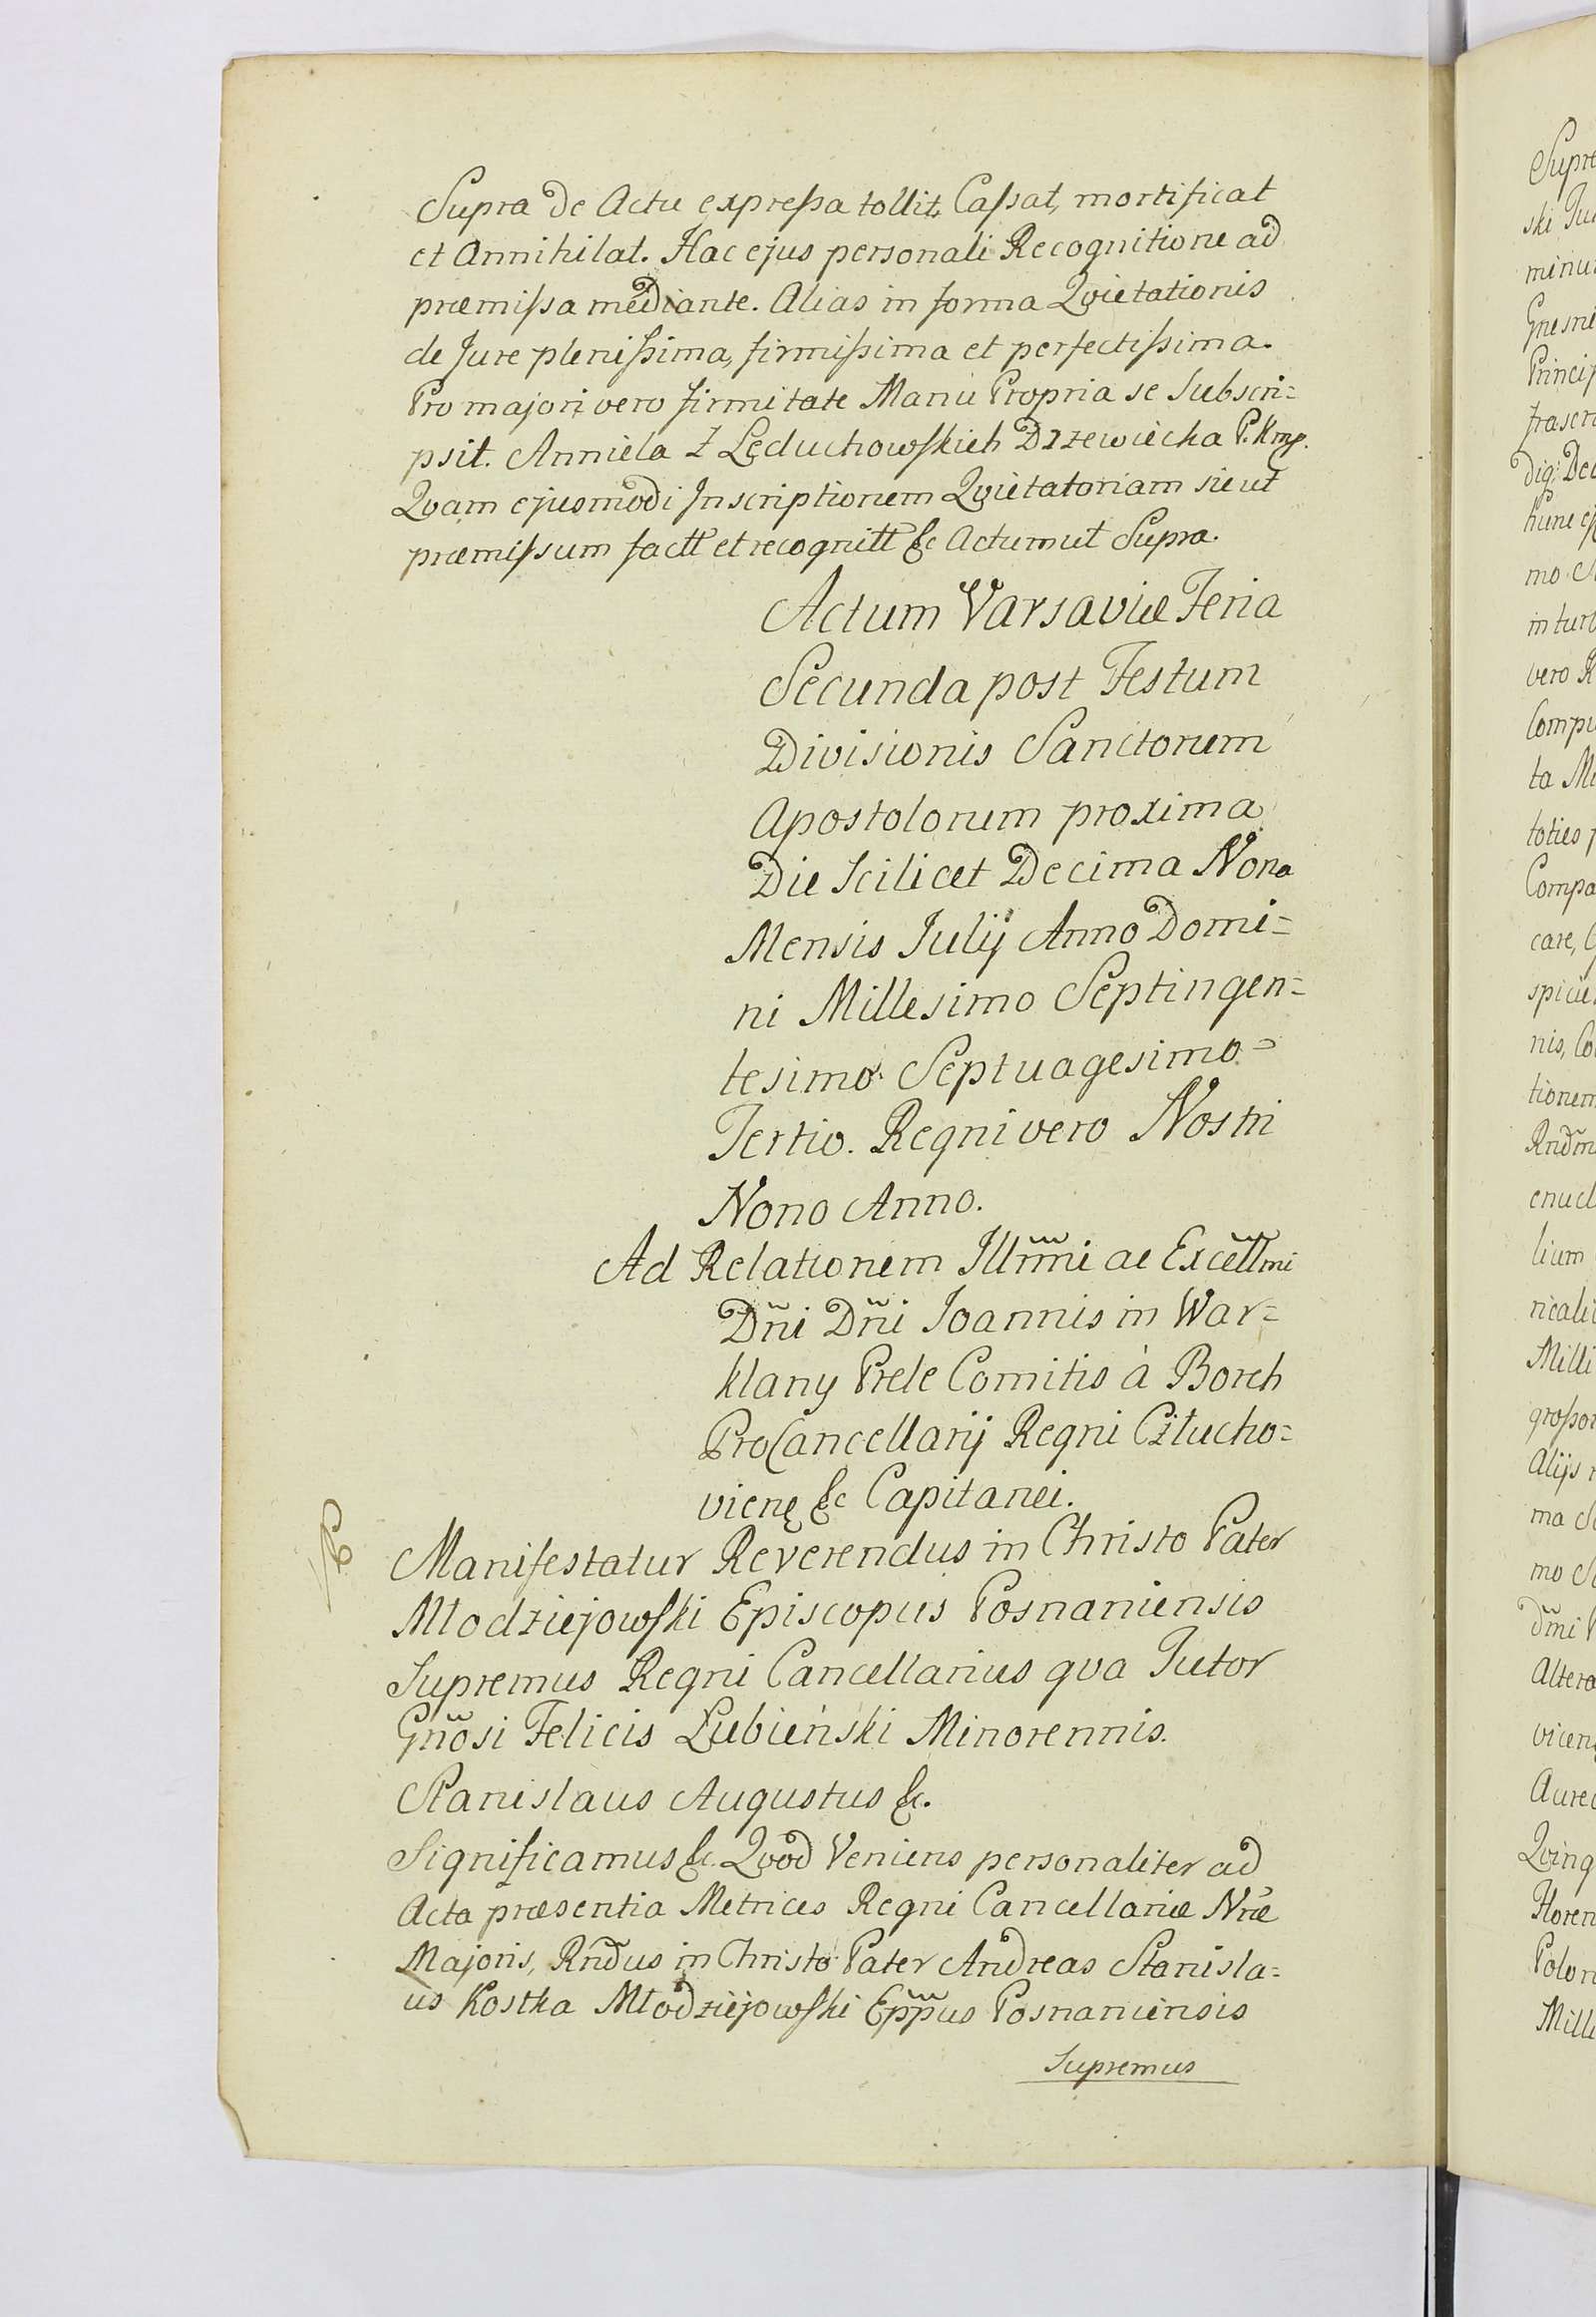 Supra de Actu expreſsa tollit, Caſsat, mortificat
et Annihilat. Hac ejus personali Recognitione ad
præmiſsa mediante. Alias in forma Qvietationis
de Jure pleniſsima, firmiſsima et perfectiſsima.
Pro majori vero firmitate Manu Propria se Subscri=
psit. Anniela Z Leduchowſkich Drzewiecka P. Kmp.
Qvam ejusmodi Inscriptionem Qvietatoriam sicut
præmiſsum factt et recognitt &c Actum ut Supra.
Actum Varsaviæ Feria
Secunda post Festum
Divisionis Sanctorum
Apostolorum proxima
Die Scilicet Decima Nona
Mensis Julij Anno Domi=
ni Millesimo Septingen=
tesimo Septuagesimo=
Tertio. Regni vero Nostri
Nono Anno.
Ad Relationem Illm̃mi ac Excellm̃mi
Dñi Dñi Joannis in War=
klany Prele Comitis à Borch
ProCancellarij Regni Człucho=
vienę &c Capitanei.
Manifestatur Reverendus in Christo Pater
Młodziejowſki Episcopus Posnaniensis
Supremus Regni Cancellarius qva Tutor
Gñosi Felicis Łubieński Minorennis.
Stanislaus Augustus &c.
Significamus &c. Qvod Veniens personaliter ad
Acta præsentia Metrices Regni Cancellariæ Nræ
Majoris, Rñdus in Christo Pater Andreas Stanisla=
us Kostka Młodziejowſki Epp̃us Posnaniensis
Supremus
Supre
ski
minu
Gnesne
Princip
frascr
dig: Dec
hunc ej
mo
in turb
vero R
Compu
ta Me
toties p
Compa
care,
spicie
nis, Co
tionem
Rñdm
enucl
lium
ricali
Milli
groſsor
Alijs
ma
mo
dm̃i
Altera
vicen
Aure
Qving
Floren
Polon
Mille